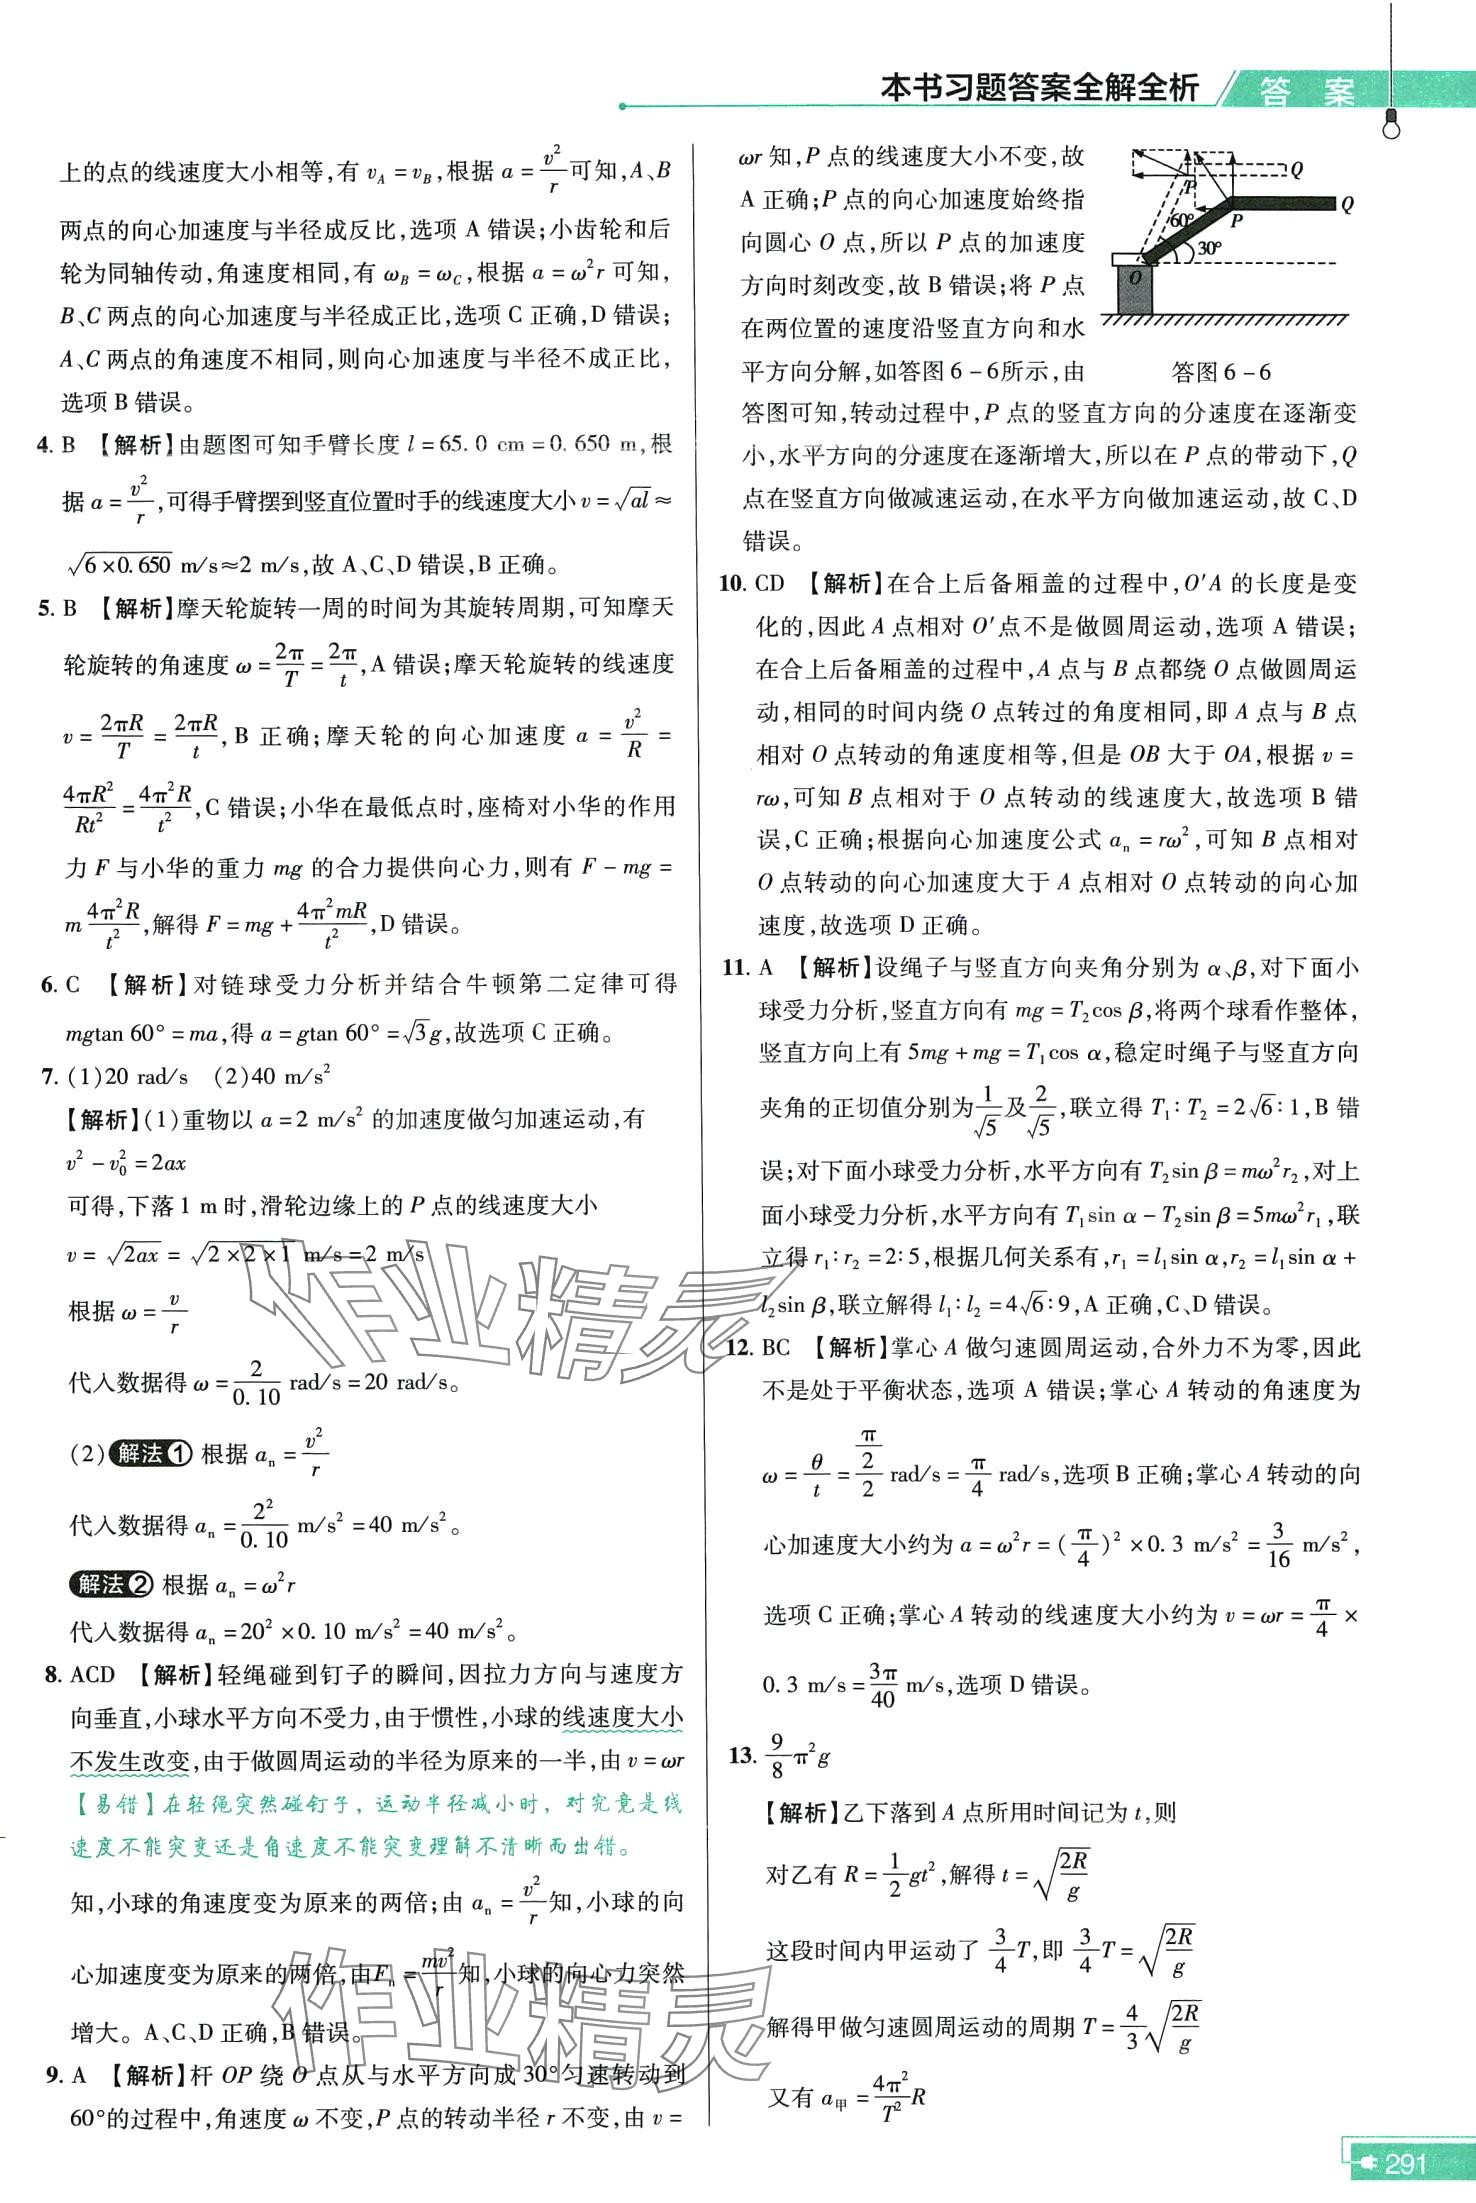 本书习题答案全解全析
答 案
上的点的线速度大小相等,有 v_A = v_B,根据 a = v²/r 可知,A、B
两点的向心加速度与半径成反比,选项 A 错误;小齿轮和后
轮为同轴传动,角速度相同,有 ω_B = ω_C,根据 a = ω²r 可知,
B、C 两点的向心加速度与半径成正比,选项 C 正确,D 错误;
A、C 两点的角速度不相同,则向心加速度与半径不成正比,
选项 B 错误。
4. B 【解析】由题图可知手臂长度 l = 65.0 cm = 0.650 m,根
据 a = v²/r,可得手臂摆到竖直位置时手的线速度大小 v = √(al) ≈
√(6×0.650) m/s≈2 m/s,故 A、C、D 错误,B 正确。
5. B 【解析】摩天轮旋转一周的时间为其旋转周期,可知摩天
轮旋转的角速度 ω = 2π/T = 2π/t,A 错误;摩天轮旋转的线速度
v = 2πR/T = 2πR/t,B 正确;摩天轮的向心加速度 a = v²/R =
4πR²/Rt² = 4π²R/t²,C 错误;小华在最低点时,座椅对小华的作用
力 F 与小华的重力 mg 的合力提供向心力,则有 F - mg =
m 4π²R/t²,解得 F = mg + 4π²mR/t²,D 错误。
6. C 【解析】对链球受力分析并结合牛顿第二定律可得
mgtan 60° = ma,得 a = gtan 60° = √3g,故选项 C 正确。
7. (1)20 rad/s (2)40 m/s²
【解析】(1)重物以 a = 2 m/s² 的加速度做匀加速运动,有
v² - v₀² = 2ax
可得,下落 1 m 时,滑轮边缘上的 P 点的线速度大小
v = √(2ax) = √(2×2×1) m/s = 2 m/s
根据 ω = v/r
代入数据得 ω = 2/0.10 rad/s = 20 rad/s。
(2)解法1 根据 a_n = v²/r
代入数据得 a_n = 2²/0.10 m/s² = 40 m/s²。
解法2 根据 a_n = ω²r
代入数据得 a_n = 20² ×0.10 m/s² = 40 m/s²。
8. ACD 【解析】轻绳碰到钉子的瞬间,因拉力方向与速度方
向垂直,小球水平方向不受力,由于惯性,小球的线速度大小
不发生改变,由于做圆周运动的半径为原来的一半,由 v = ωr
【易错】在轻绳突然碰钉子,运动半径减小时,对究竟是线
速度不能突变还是角速度不能突变理解不清晰而出错。
知,小球的角速度变为原来的两倍;由 a_n = v²/r 知,小球的向
心加速度变为原来的两倍,由F_n = mv²/r 知,小球的向心力突然
增大。A、C、D 正确,B 错误。
9. A 【解析】杆 OP 绕 O 点从与水平方向成 30°匀速转动到
60°的过程中,角速度 ω 不变,P 点的转动半径 r 不变,由 v =
ωr 知,P 点的线速度大小不变,故
A 正确;P 点的向心加速度始终指
向圆心 O 点,所以 P 点的加速度
方向时刻改变,故 B 错误;将 P 点
在两位置的速度沿竖直方向和水
平方向分解,如答图 6-6所示,由
Q
P
Q
P
60°
30°
O
答图 6-6
答图可知,转动过程中,P 点的竖直方向的分速度在逐渐变
小,水平方向的分速度在逐渐增大,所以在 P 点的带动下,Q
点在竖直方向做减速运动,在水平方向做加速运动,故 C、D
错误。
10. CD 【解析】在合上后备厢盖的过程中,O′A 的长度是变
化的,因此 A 点相对 O′点不是做圆周运动,选项 A 错误;
在合上后备厢盖的过程中,A 点与 B 点都绕 O 点做圆周运
动,相同的时间内绕 O 点转过的角度相同,即 A 点与 B 点
相对 O 点转动的角速度相等,但是 OB 大于 OA,根据 v =
rω,可知 B 点相对于 O 点转动的线速度大,故选项 B 错
误,C 正确;根据向心加速度公式 a_n = rω²,可知 B 点相对
O 点转动的向心加速度大于 A 点相对 O 点转动的向心加
速度,故选项 D 正确。
11. A 【解析】设绳子与竖直方向夹角分别为 α、β,对下面小
球受力分析,竖直方向有 mg = T₂cos β,将两个球看作整体,
竖直方向上有 5mg + mg = T₁cos α,稳定时绳子与竖直方向
夹角的正切值分别为 1/√5 及 2/√5,联立得 T₁∶T₂ = 2√6∶1,B 错
误;对下面小球受力分析,水平方向有 T₂sin β = mω²r₂,对上
面小球受力分析,水平方向有 T₁sin α - T₂sin β = 5mω²r₁,联
立得 r₁∶r₂ = 2∶5,根据几何关系有,r₁ = l₁sin α,r₂ = l₁sin α +
l₂sin β,联立解得 l₁∶l₂ = 4√6∶9,A 正确,C、D 错误。
12. BC 【解析】掌心 A 做匀速圆周运动,合外力不为零,因此
不是处于平衡状态,选项 A 错误;掌心 A 转动的角速度为
ω = θ/t = (π/2)/2 rad/s = π/4 rad/s,选项 B 正确;掌心 A 转动的向
心加速度大小约为 a = ω²r = (π/4)² ×0.3 m/s² = 3/16 m/s²,
选项 C 正确;掌心 A 转动的线速度大小约为 v = ωr = π/4 ×
0.3 m/s = 3π/40 m/s,选项 D 错误。
13. 9/8 π²g
【解析】乙下落到 A 点所用时间记为 t,则
对乙有 R = 1/2 gt²,解得 t = √(2R/g)
这段时间内甲运动了 3/4 T,即 3/4 T = √(2R/g)
解得甲做匀速圆周运动的周期 T = 4/3 √(2R/g)
又有 a_甲 = 4π²/T² R
291
作业精灵
作业精灵